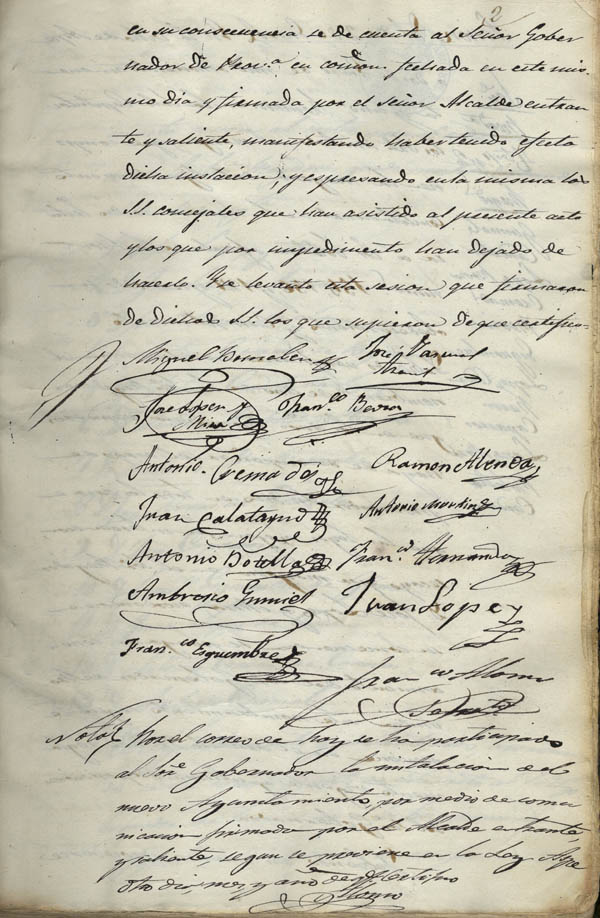 2
en su consecuencia se de cuenta al Señor Gober
nador de Prov.a en comon. fechada en este mis
mo dia y firmada por el Señor Alcalde entran
te y saliente, manifestando haber tenido efecto
dicha instalacion, y espresando en la misma los
S.S. concejales que han asistido al presente acto
y los que por impedimento han dejado de
hacerlo. Y se levanto esta sesion que firmaron
de dichos S.S. los que supieron de que certifico=
Miguel
José
José Lopez y
Mira
Fran.co
Antonio Cremades
Ramon Alenda
Juan Calatayud
Antonio Martinez
Antonio Botella
Fran.co Hernandez
Ambrosio Gumiel
Juan Lopez
Fran.co Esquembre
Fran.co Alonso
Nota
Por el correo de hoy se ha participado
al Sor. Gobernador la instalacion del
nuevo Ayuntamiento, por medio de comu
nicacion firmada por el Alcalde entrante,
y saliente, segun se previene en la Ley
dia, mes y año de
Alonso